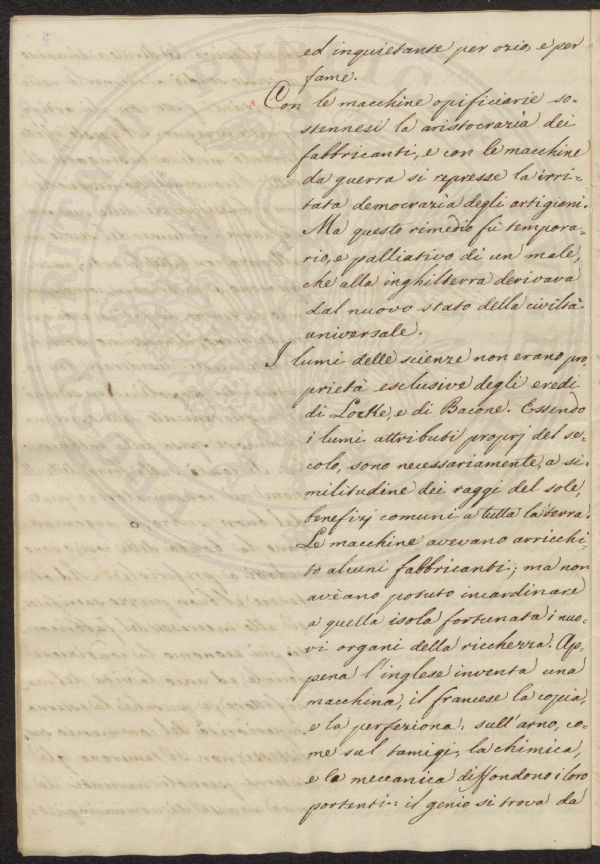 ed inquietante per ozio, e per
fame.
Con le macchine opificiarie so-
stennesi la aristocrazia dei
fabbricanti, e con le macchine
da guerra si represse la irri-
tata democrazia degli artigiani.
Ma questo rimedio fù tempora-
rio, e palliativo di un male,
che alla inghilterra derivava
dal nuovo stato della civiltà
universale.
I lumi delle scienze non erano pro-
prietà esclusive degli eredi
di Locke, e di Bacone. Essendo
i lumi attributi proprj del se-
colo, sono necessariamente, a si-
militudine dei raggi del sole,
benefizj comuni a tutta la terra.
Le macchine avevano arricchi-
to alcuni fabbricanti; ma non
avèano potuto incardinare
a quella isola fortunata i nuo-
vi organi della ricchezza. Ap-
pena l'inglese inventa una
macchina, il francese la copia,
e la perfeziona: sull'arno, co-
me sul tamigi, la chimica,
e la meccanica diffondono i loro
portenti: il genio si trova da